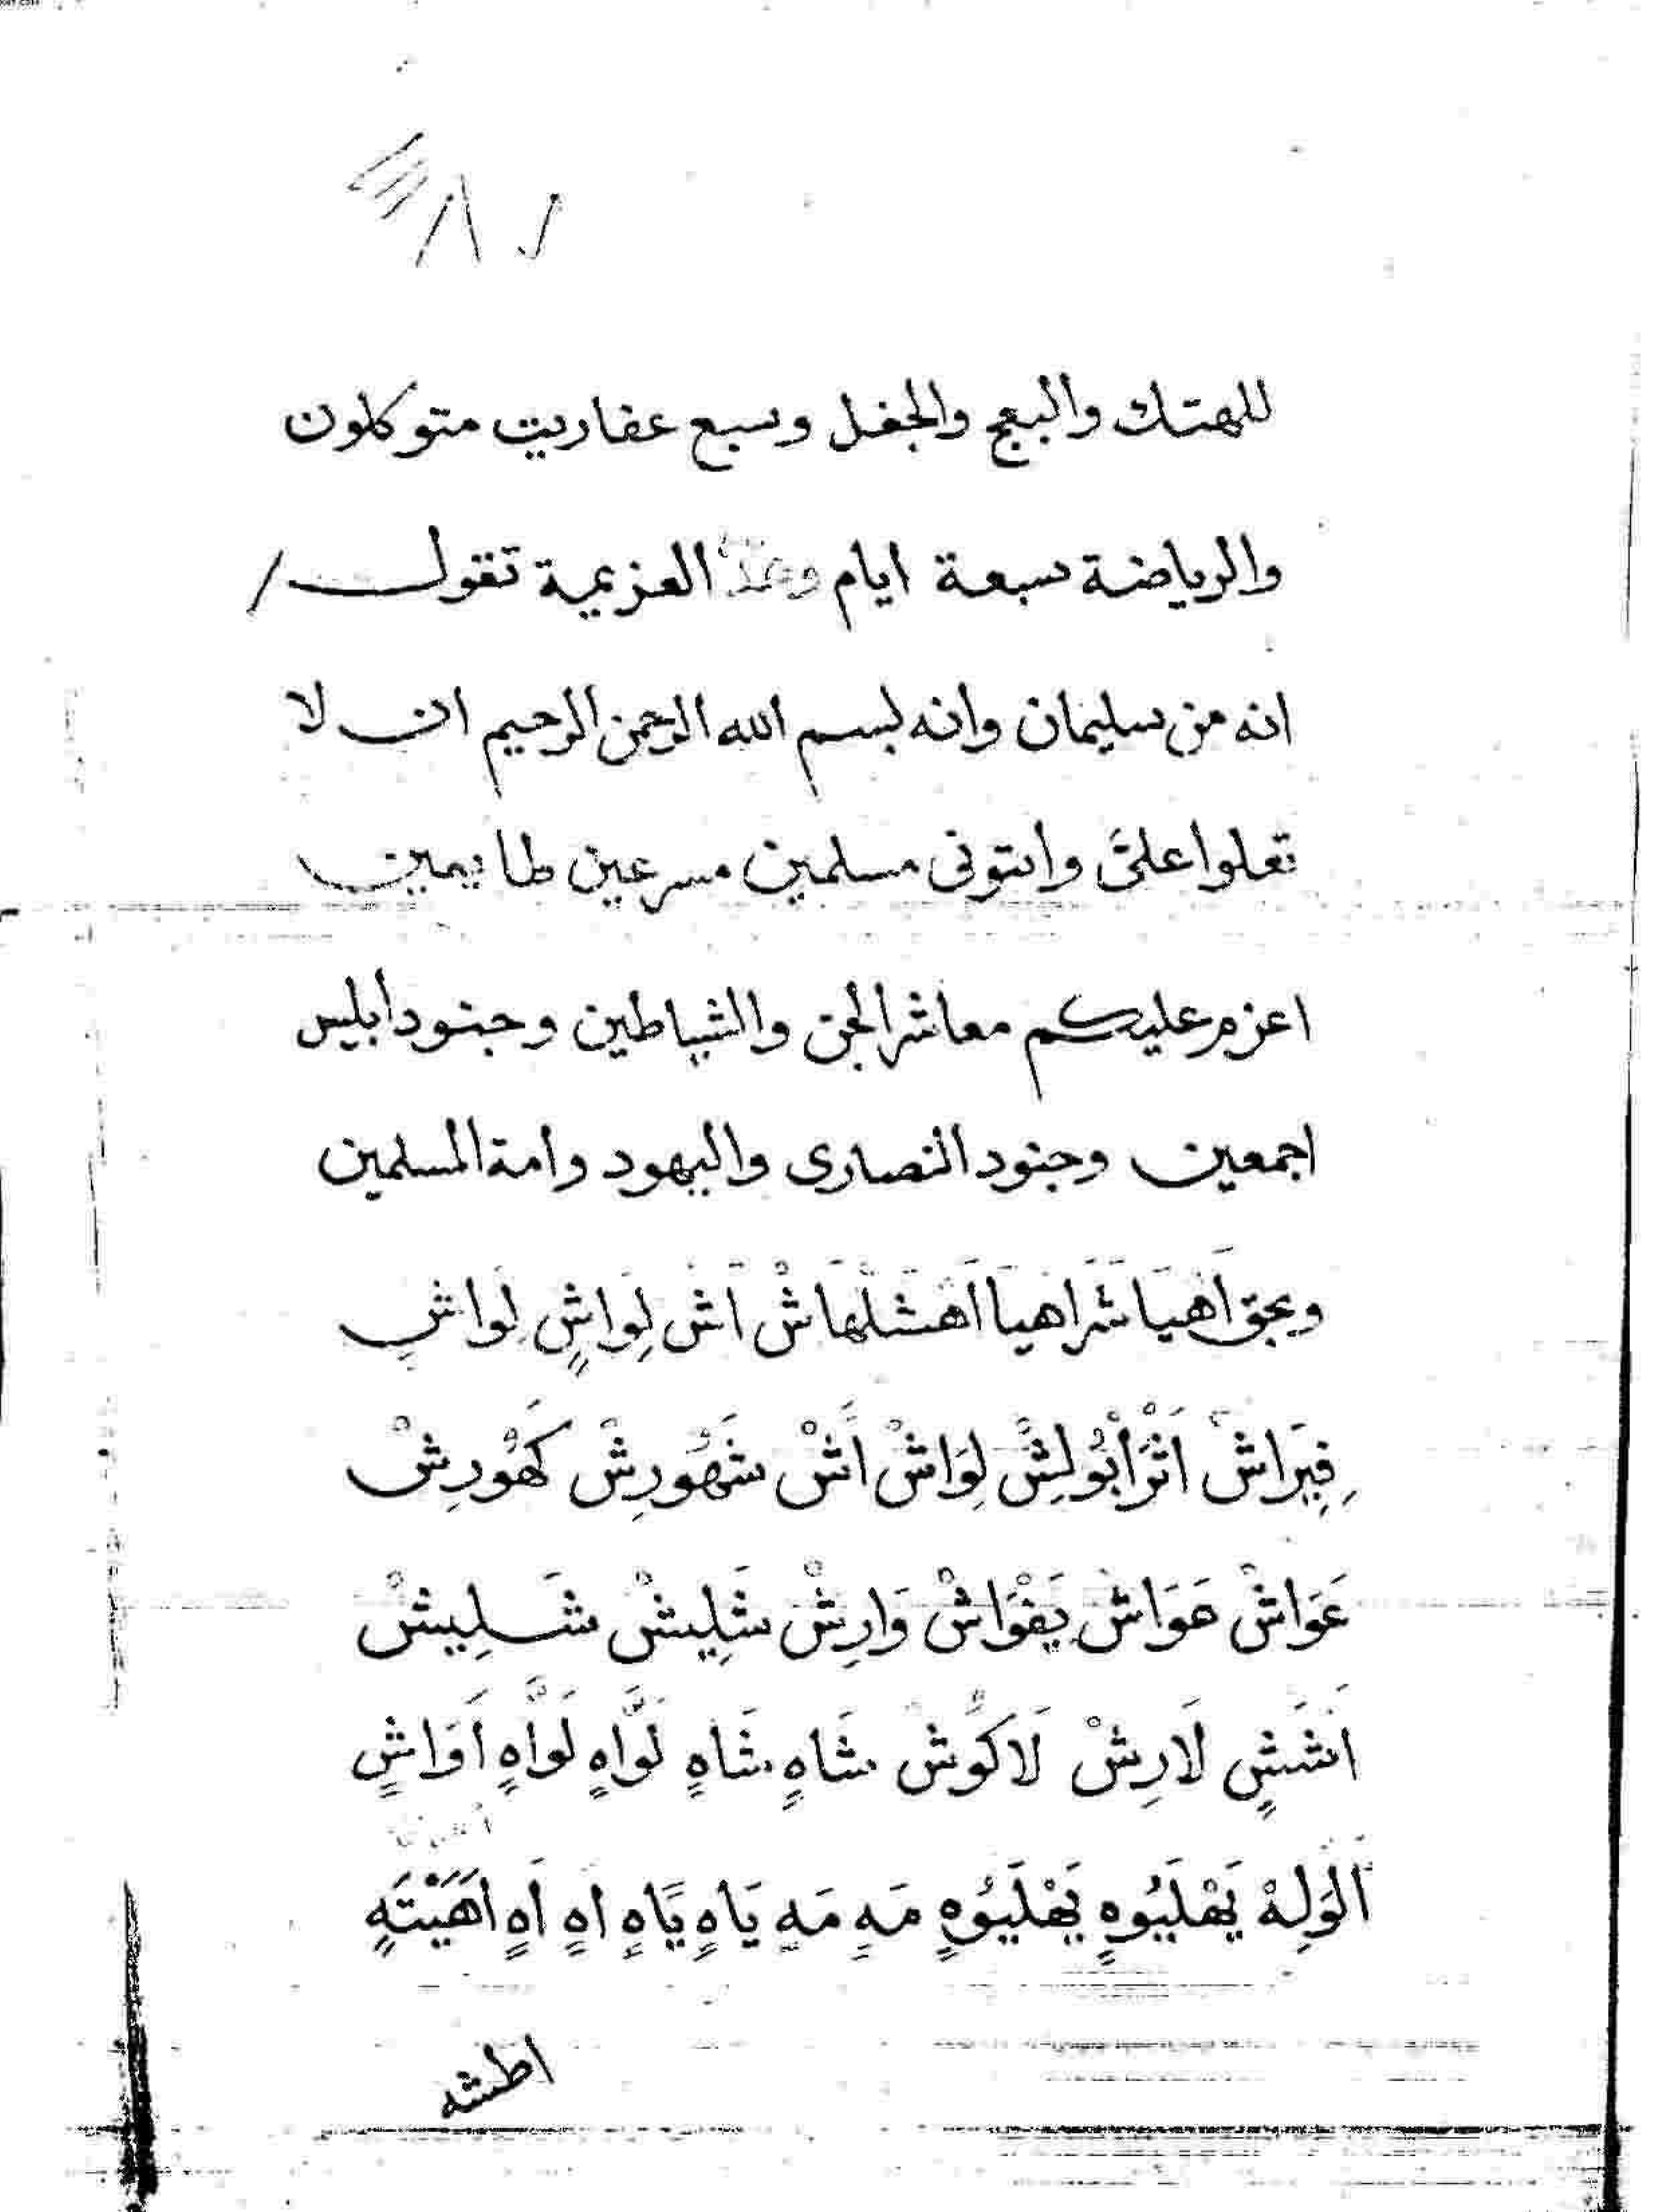 للهتك والبعج والجفل وسبع عفاريت متوكلون
والرياضة سبعة ايام العزيمة تقول /
انه من سليمان وانه لبسم الله الرحمن الرحيم ان لا
تعلوا علىَّ واىتونى مسلمين مسرعين طايعين
اعزم عليكم معاشر الجن والشياطين وجنود أبليس
اجمعين وجنود النصارى واليهود وامة المسلمين
وبحق اَهيَا شَرَاهيَا اَهشَلْهَاشْ اَش لِوَاشٍ لِوَاشٍ
فِيَرَاشْ اَثْرَأبُولِشْ لِوَاشْ اَشْ شَهُورِشْ كَهْورِشْ
عَوَاشْ هَوَاش يَغْوَاشْ وَارِشْ شَلِيشْ شَلِيشْ
اَشَشٍ لَارِشْ لَاكَوْش شَاهٍ شَاهٍ لَوَّاهٍ لَوَّاهٍ اَوَاشٍ
اَلوَلِهْ يَهْلَيُوهٍ يَهْلَيُوهٍ مَهٍ مَهٍ يَاهٍ يَاهٍ اهٍ اَهٍ اَهَيْتَهٍ
اطشه